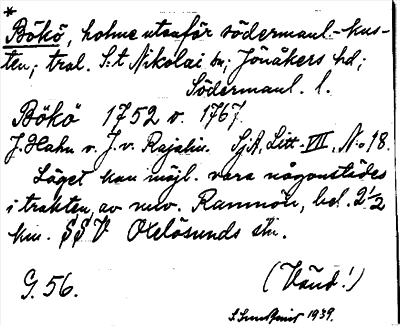 *
Bökö, holme utanför södermanl.-kus-
ten; trol. S:t Nikolai sn; Jönåkers hd;
Södermanl. l.
Bökö 1752 o. 1767.
J. Hahn o. J. v. Rajalin. SjA, Litt. VIII, No 18.
Läget kan möjl. vara någonstädes
i trakten av nuv. Ramnön, bel. 2 1/2
km. SSV Oxelösunds stn.
G. 56.
(Vänd!)
1939.